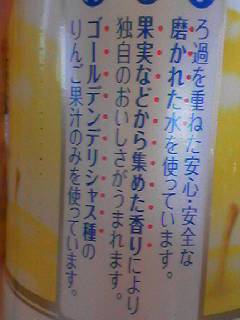 ろ過を重ねた安心・安全な
磨かれた水を使っています。
果実などから集めた香りにより
独自のおいしさがうまれます。
ゴールデンデリシャス種の
りんご果汁のみを使っています。